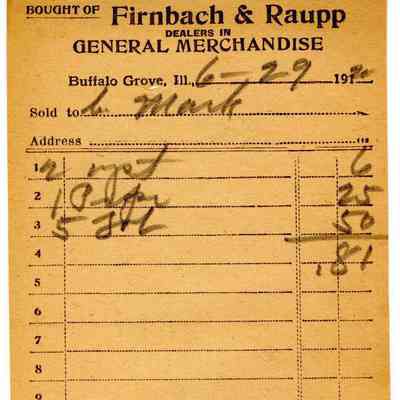 BOUGHT OF Firnbach & Raupp
DEALERS IN
GENERAL MERCHANDISE
Buffalo Grove, Ill., 6-29 191
Sold to C. Mark
Address
1 2 6
2 1 25
3 5 50
4 .81
5
6
7
8
9